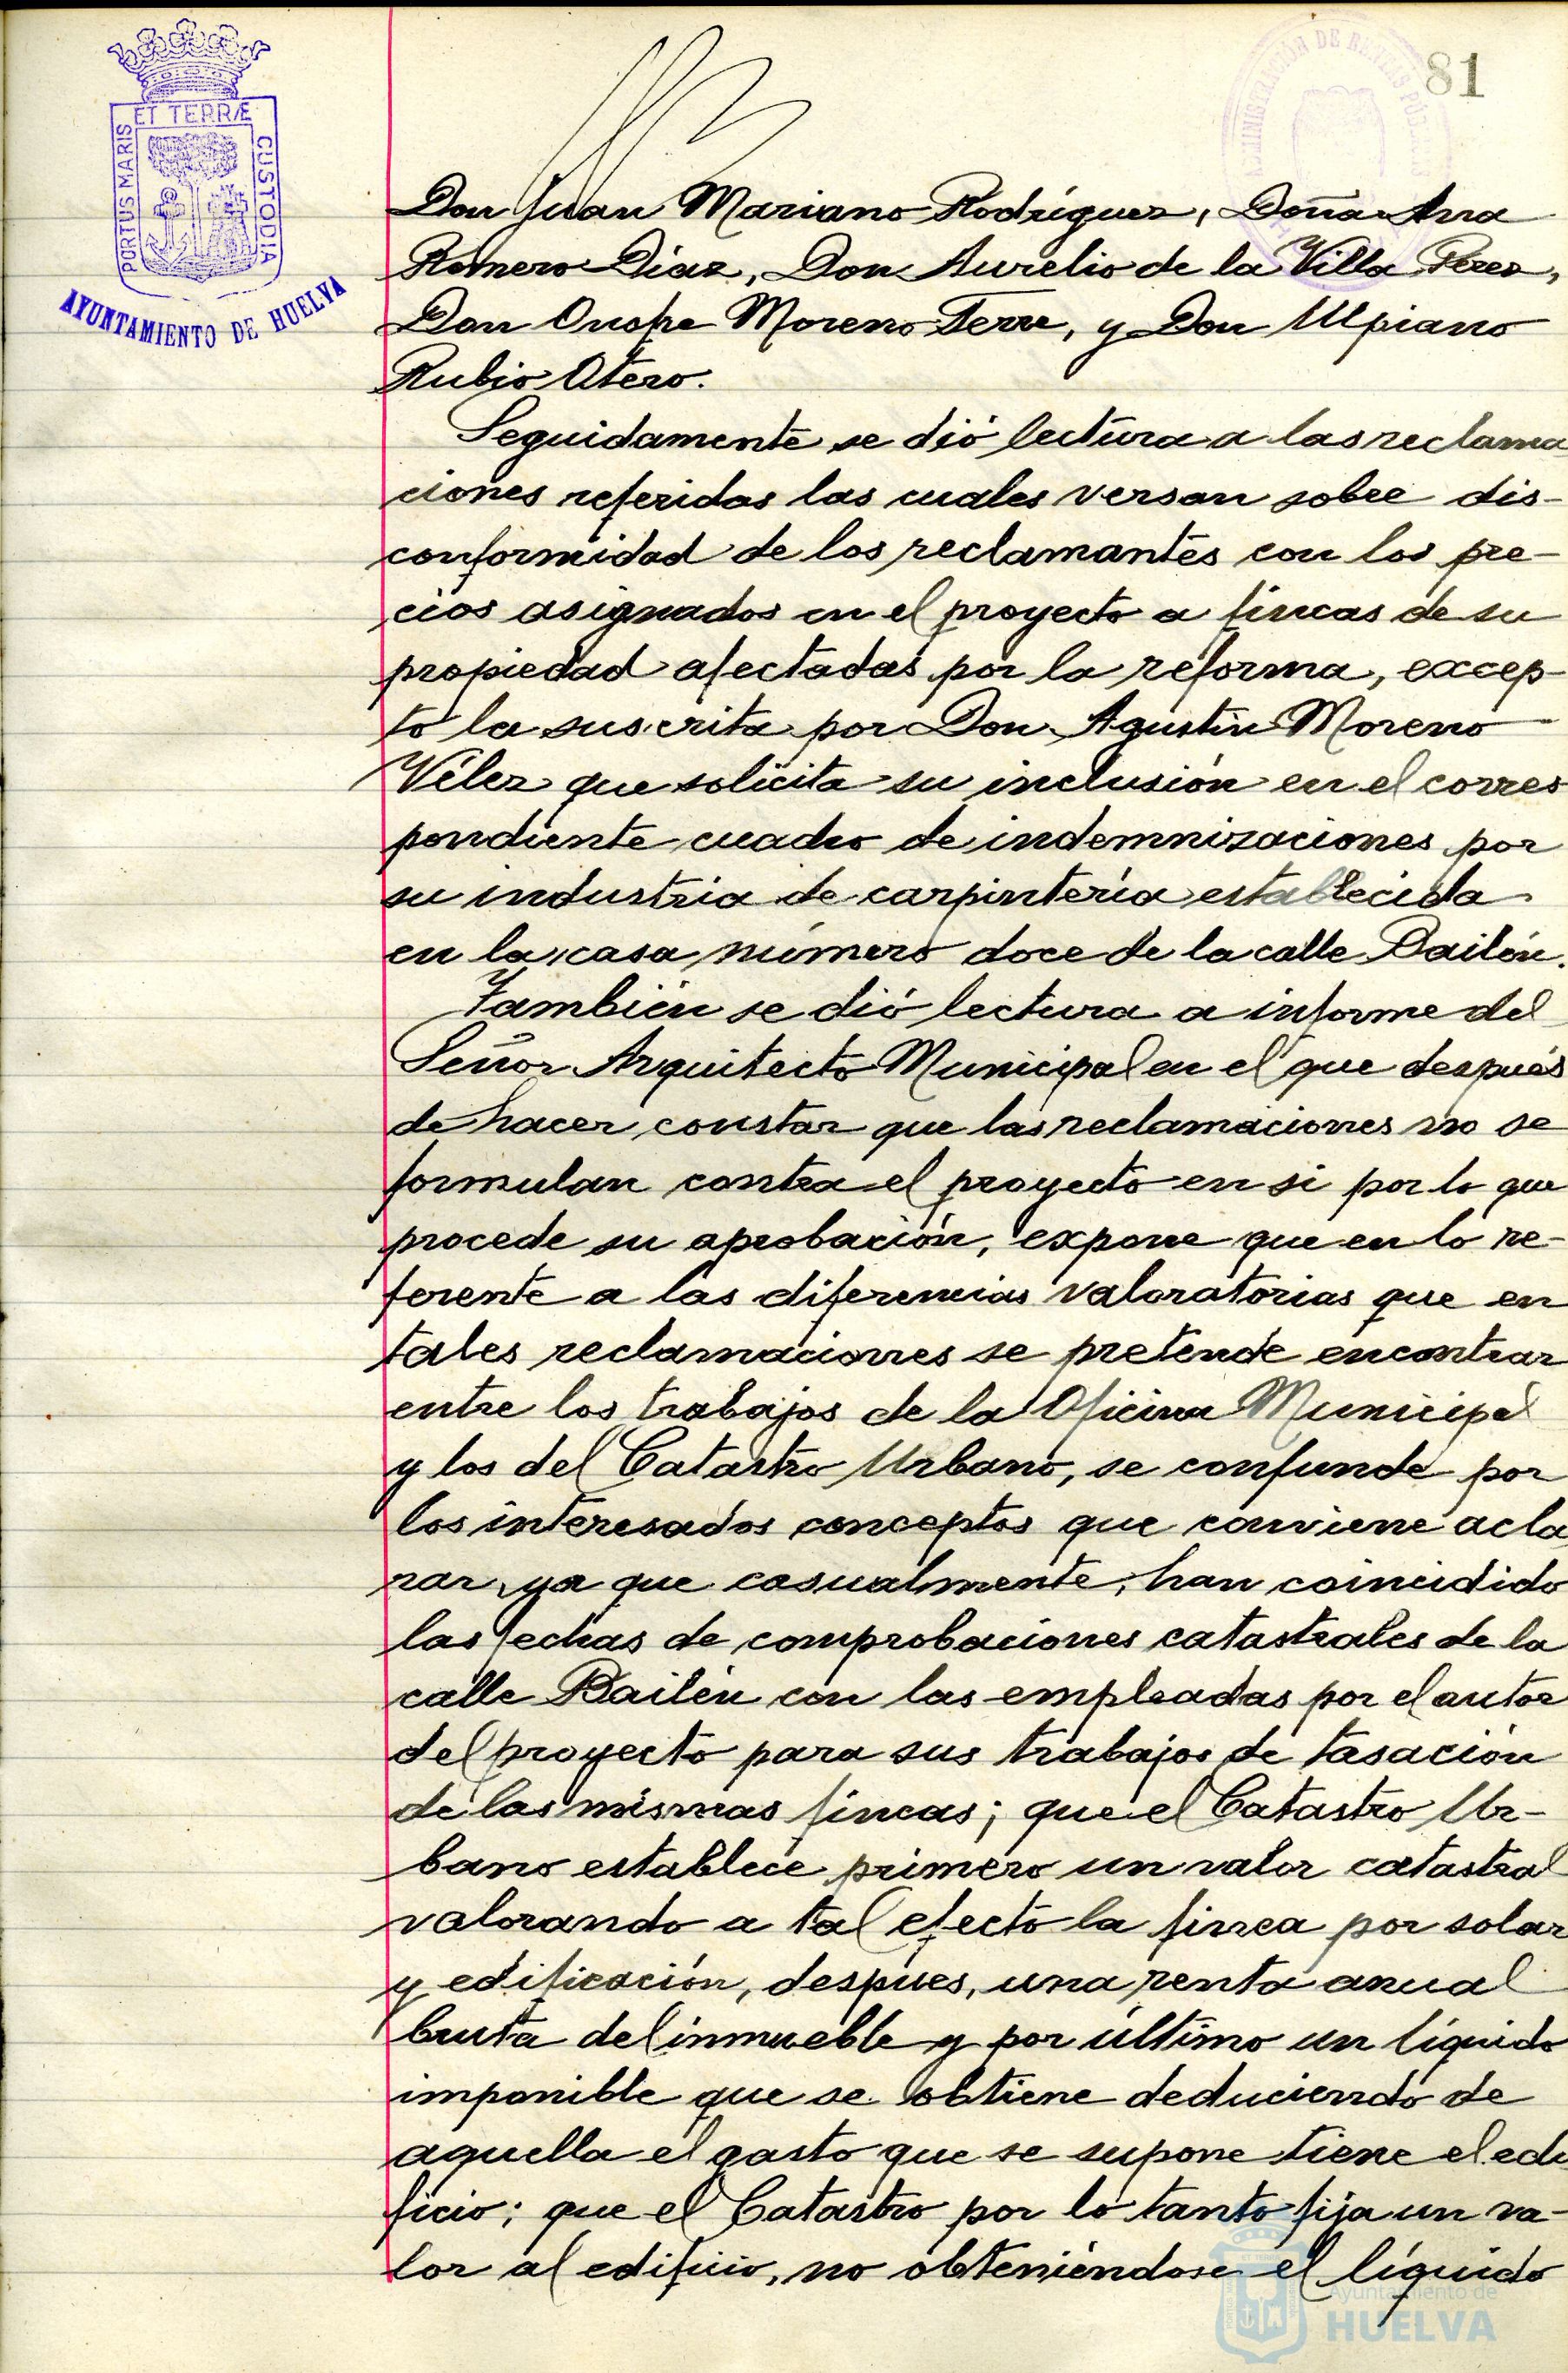 81
ET TERRÆ
PORTUS MARIS
CUSTODIA
AYUNTAMIENTO DE HUELVA
ADMINISTRACIÓN DE RENTAS PÚBLICAS
Don Juan Mariano Rodríguez, Doña Ana
Romero Díaz, Don Aurelio de la Villa Perez,
Don Onofre Moreno Terre, y Don Ulpiano
Rubio Otero.
Seguidamente se dió lectura a las reclama
ciones referidas las cuales versan sobre dis-
conformidad de los reclamantes con los pre-
cios asignados en el proyecto a fincas de su
propiedad afectadas por la reforma, excep-
to la suscrita por Don Agustín Moreno
Vélez que solicita su inclusión en el corres
pondiente cuadro de indemnizaciones por
su industria de carpintería establecida
en la casa número doce de la calle Bailén.
También se dió lectura a informe del
Señor Arquitecto Municipal en el que después
de hacer constar que las reclamaciones no se
formulan contra el proyecto en si por lo que
procede su aprobación, expone que en lo re-
ferente a las diferencias valoratorias que en
tales reclamaciones se pretende encontrar
entre los trabajos de la Oficina Municipal
y los del Catastro Urbano, se confunde por
los interesados conceptos que conviene acla
rar, ya que casualmente, han coincidido
las fechas de comprobaciones catastrales de la
calle Bailén con las empleadas por el autor
del proyecto para sus trabajos de tasación
de las mismas fincas; que el Catastro Ur-
bano establece primero un valor catastral
valorando a tal efecto la finca por solar
y edificación, despúes, una renta anual
bruta del inmueble y por último un líquido
imponible que se obtiene deduciendo de
aquella el gasto que se supone tiene el edi
ficio; que el Catastro por lo tanto fija un va-
lor al edificio, no obteniéndose el líquido
Ayuntamiento de
HUELVA